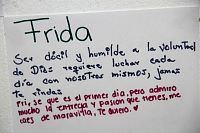 Frida
Ser dócil y humilde a la voluntad
de Dios requiere luchar cada
día con nosotros mismos, jamás
te rindas
Fri, se que es el primer día, pero admiro
mucho la entrega y pasión que tienes, me
caes de maravilla, te quiero. ♥